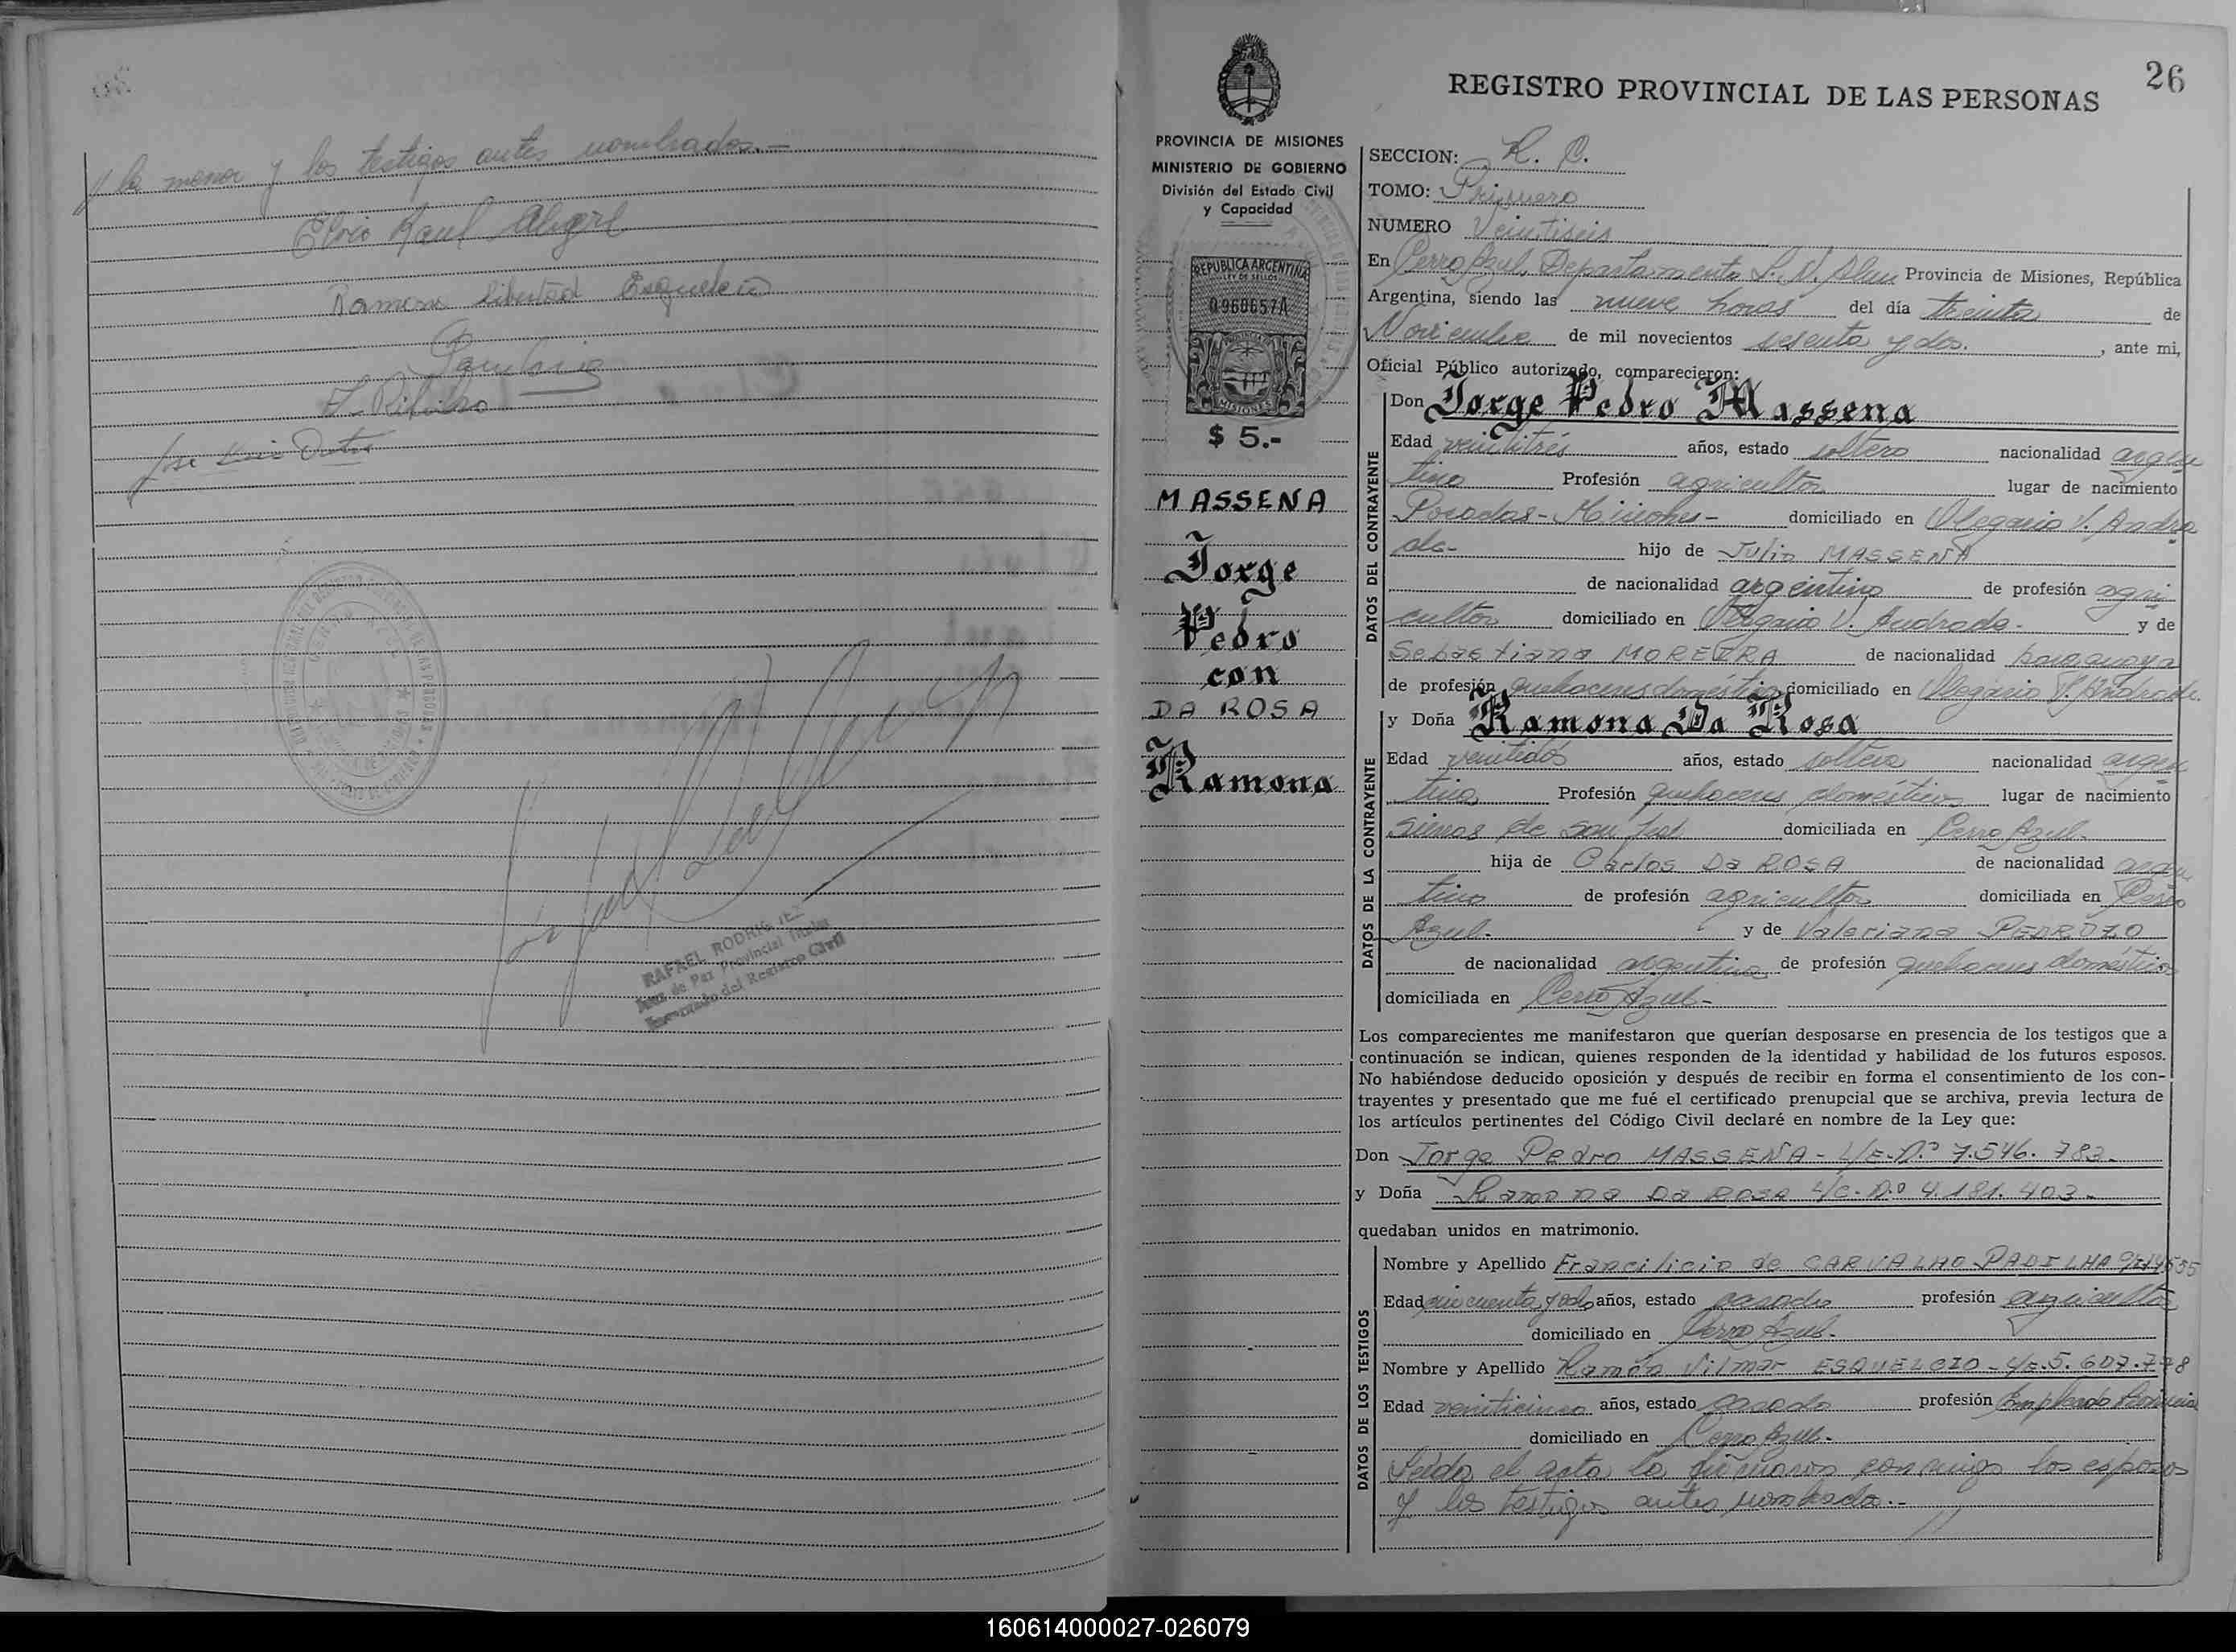 y la menor y los testigos antes nombrados.—
Elvio Raul Alegre
Ramona Libertad Esquelcio
RAFAEL RODRIGUEZ
Juez de Paz Provincial Titular
Encargado del Registro Civil
26
REGISTRO PROVINCIAL DE LAS PERSONAS
PROVINCIA DE MISIONES
MINISTERIO DE GOBIERNO
División del Estado Civil
y Capacidad
REPUBLICA ARGENTINA
LEY DE SELLOS
0960657A
MISIONES
$ 5.-
MASSENA
Jorge
Pedro
con
DA ROSA
Ramona
SECCION:
TOMO: Primero
NUMERO Veintiseis
En Cerro Azul, Departamento L. N. Alem Provincia de Misiones, República
Argentina, siendo las nueve horas del día treinta de
Noviembre de mil novecientos sesenta y dos. , ante mi,
Oficial Público autorizado, comparecieron:
DATOS DEL CONTRAYENTE
Don Jorge Pedro Massena
Edad veintitrés años, estado soltero nacionalidad argen
tina Profesión agricultor lugar de nacimiento
Posadas - Misiones - domiciliado en Olegario V. Andra
de- hijo de Julio MASSENA
de nacionalidad argentino de profesión agri
cultor domiciliado en Olegario V. Andrade. y de
Sebastiana MOREIRA de nacionalidad paraguaya
de profesión quehaceres domésticos domiciliado en Olegario V. Andrade.
DATOS DE LA CONTRAYENTE
y Doña Ramona Da Rosa
Edad veintidos años, estado soltera nacionalidad argen
tina Profesión quehaceres domésticos lugar de nacimiento
Sierras de San José domiciliada en Cerro Azul-
hija de Carlos Da ROSA de nacionalidad argen
tino de profesión agricultor domiciliada en Cerro
Azul. y de Valeriana PEDROZO
de nacionalidad argentina de profesión quehaceres domésticos
domiciliada en Cerro Azul-
Los comparecientes me manifestaron que querían desposarse en presencia de los testigos que a
continuación se indican, quienes responden de la identidad y habilidad de los futuros esposos.
No habiéndose deducido oposición y después de recibir en forma el consentimiento de los con-
trayentes y presentado que me fué el certificado prenupcial que se archiva, previa lectura de
los artículos pertinentes del Código Civil declaré en nombre de la Ley que:
Don Jorge Pedro MASSENA - L/E. N.º 7.546.783.
y Doña Ramona Da ROSA L/C. N.º 4.181.403.
quedaban unidos en matrimonio.
DATOS DE LOS TESTIGOS
Nombre y Apellido Francilicio de CARVALHO PADILHA
Edad cincuenta y ocho años, estado casado profesión agricultor
domiciliado en Cerro Azul.
Nombre y Apellido Ramón Vilmar ESQUELCIO - L/E. 5.607.778
Edad veinticinco años, estado casado profesión Empleado Provincial
domiciliado en Cerro Azul.
Leída el acta, la firmaron conmigo los esposos
y los testigos antes nombrados.-
160614000027-026079